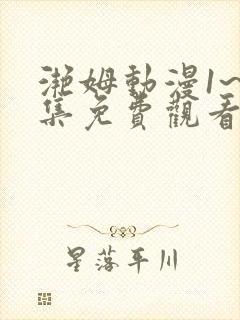 滟姆動漫1~
集免費觀看
星落平川